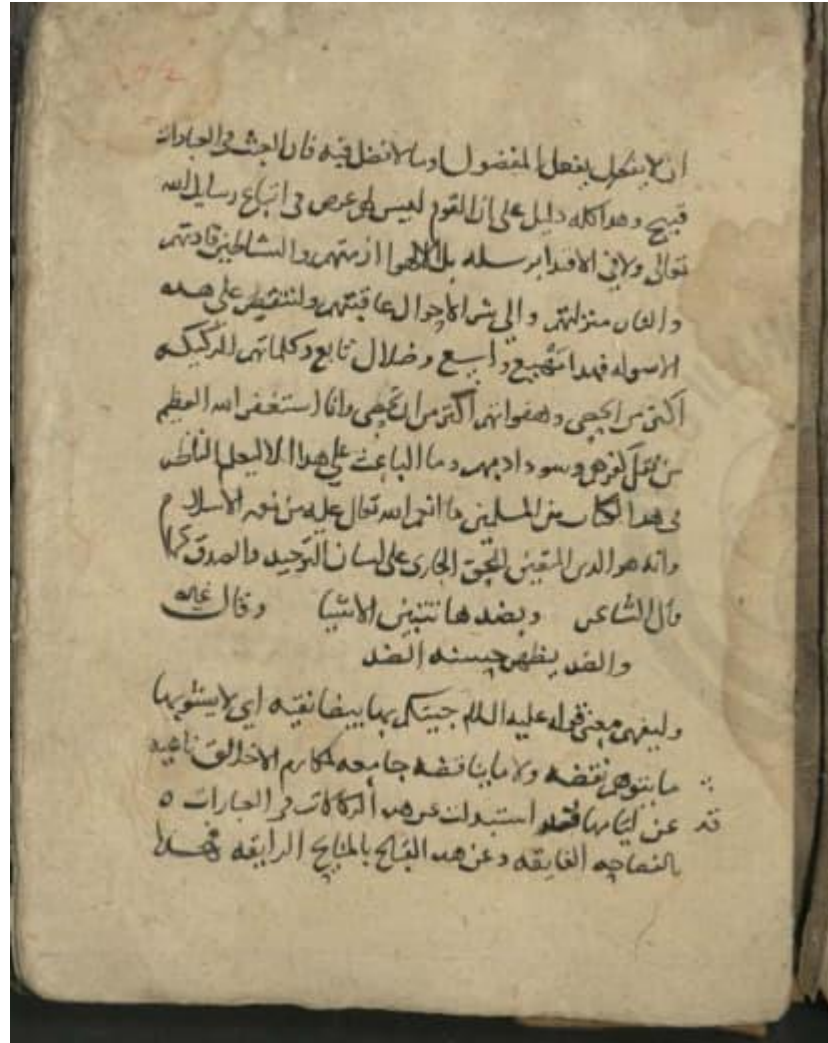 ان لا يتكل بفعل المفضول او ما لا فضل فيه فان العبث في العبادات
قبيح وهدا كله دليل على ان القوم ليس لهم غرض في اتباع رسايل الله
تعالى ولا في الاقتدا برسله بل الاهوا ازمتهم والشياطين قادتهم
والنار منزلتهم والي شر الاحوال عاقبتهم ولنقتصر على هده
الاسوله فهدا مهيع واسع وضلال تابع وكلماتهم الركيكه
اكثر من الحصى وهفواتهم اكثر من ان تحصى وانا استغفر الله العظيم
من نقل كفرهم وسوء ادبهم وما الباعث على هدا الا ليعلم الناظر
في هدا الكتاب من المسلمين ما انعم الله تعالى عليه من نعمه الاسلام
وانه هو الدين المتعين للحق الجاري على لسان التوحيد والصدق كما
قال الشاعر وبضدها تتبين الاشيا وقال غيره
والضد يظهر حسنه الضد
وليفهم معنى قوله عليه السلام جيتكم بها بيضا نقيه اي لا يشوبها
ما يتوهم نقضه ولا ما يناقضه جامعه لمكارم الاخلاق ناهيه
عن قد استبدلت عن هده الركاكات في العبارات
بالفصاحه الفايقه وعن هده القبايح بالمنايح الرايقه فهدا